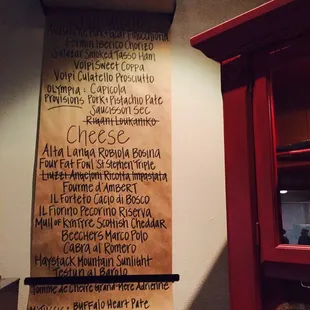 Fermin Iberico Chorizo
Salazar Smoked Tasso Ham
Volpi Sweet Coppa
Volpi Culatello Prosciutto
Olympia : Capicola
Provisions Pork & Pistachio Pate
Saucisson Sec
Rigani Loukaniko
Cheese
Alta Langa Robiola Bosina
Four Fat Fowl St. Stephen Triple
Luizzi Angeloni Ricotta Impastata
Fourme d'Ambert
Il Forteto Cacio di Bosco
Il Fiorino Pecorino Riserva
Mull of Kyntyre Scottish Cheddar
Beechers Marco Polo
Cabra al Romero
Haystack Mountain Sunlight
Testun al Barolo
Tomme de Chevre Grand-Mere Adrienne
Buffalo Heart Pate